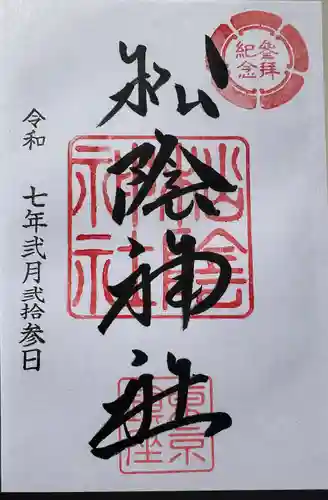 参拝
紀念
松陰神社
松陰
神社
東京
令和 七年弐月弐拾参日